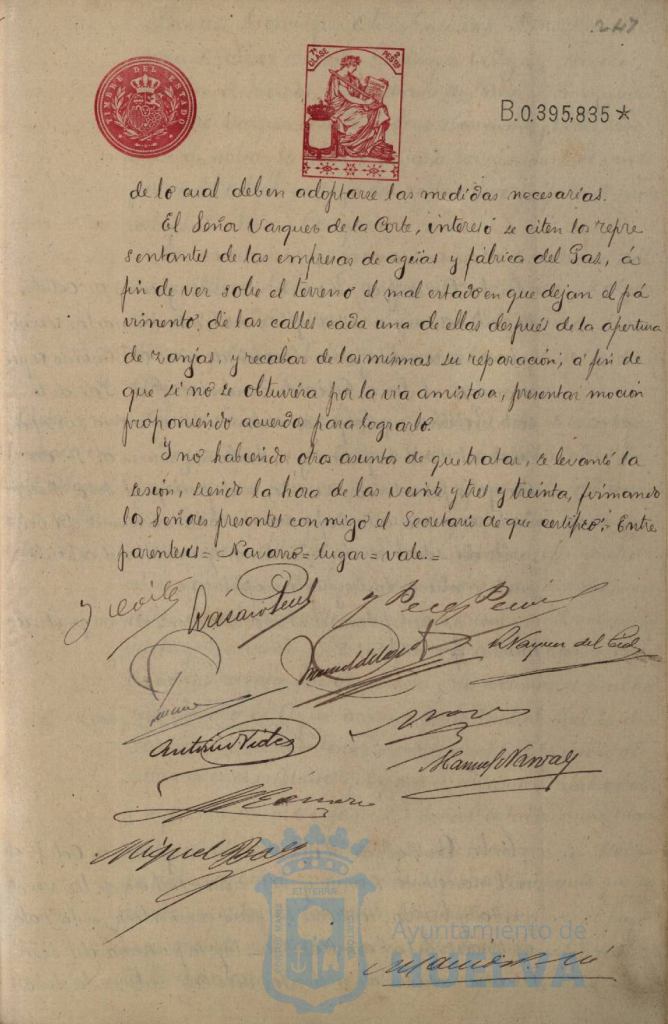 247
TIMBRE DEL ESTADO
7ª CLASE 2 PESETAS
B.0,395,835*
de lo cual deben adoptarse las medidas necesarias.
El Señor Vazquez de la Corte, interesó se citen los repre
sentantes de las empresas de aguas y fábrica del Gas, á
fin de ver sobre el terreno el mal estado en que dejan el pa
vimento, de las calles cada una de ellas despues de la apertura
de zanjas, y recabar de las mismas su reparación; á fin de
que si no se obtuviera por la vía amistosa, presentar moción
proponiendo acuerdo para lograrlo.
Y no habiendo otro asunto de que tratar, se levantó la
sesión, siendo la hora de las veinte y tres y treinta, firmando
los Señores presentes conmigo el Secretario de que certifico;- Entre
parentesis = Navarro = lugar = vale. =
Antonio Vides
Manuel Narvaez
Miguel
Ayuntamiento de
HUELVA